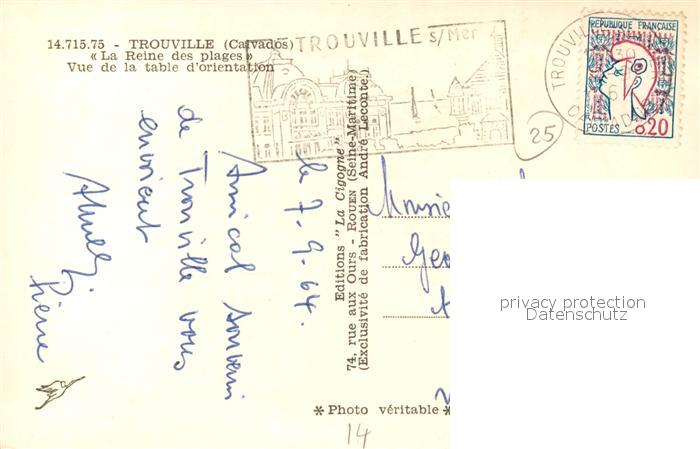 14.715.75 - TROUVILLE (Calvados)
« La Reine des plages »
Vue de la table d'orientation
TROUVILLE s/Mer
TROUVIL
CALVADOS
RÉPUBLIQUE FRANÇAISE
POSTES 0,20
25
le 7-9-64.
Amical souvenir
de Trouville vous
envoient
Pierre
Editions "La Cigogne"
74, rue aux Ours - ROUEN (Seine-Maritime)
(Exclusivité de fabrication André Leconte.)
Monsie
Geo
privacy protection
Datenschutz
* Photo véritable *
14